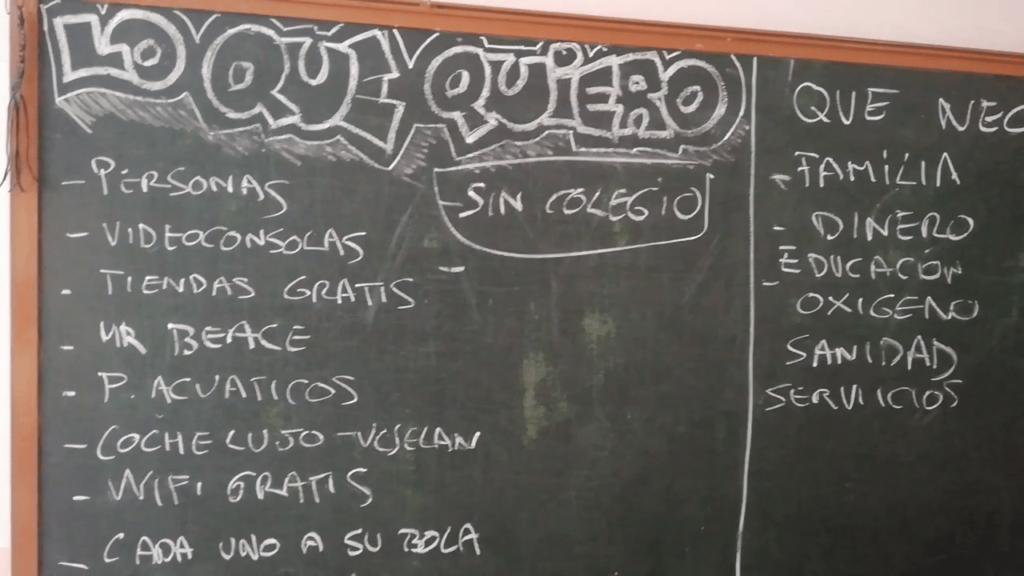 LO QUE QUIERO
- PERSONAS
- SIN COLEGIO
- VIDEOCONSOLAS
- TIENDAS GRATIS
- MR BEACE
- P. ACUATICOS
- COCHE LUJO -
- WIFI GRATIS
- CADA UNO A SU BOLA
QUE NEC
- FAMILIA
- DINERO
EDUCACIÓN
- OXIGENO
SANIDAD
SERVICIOS